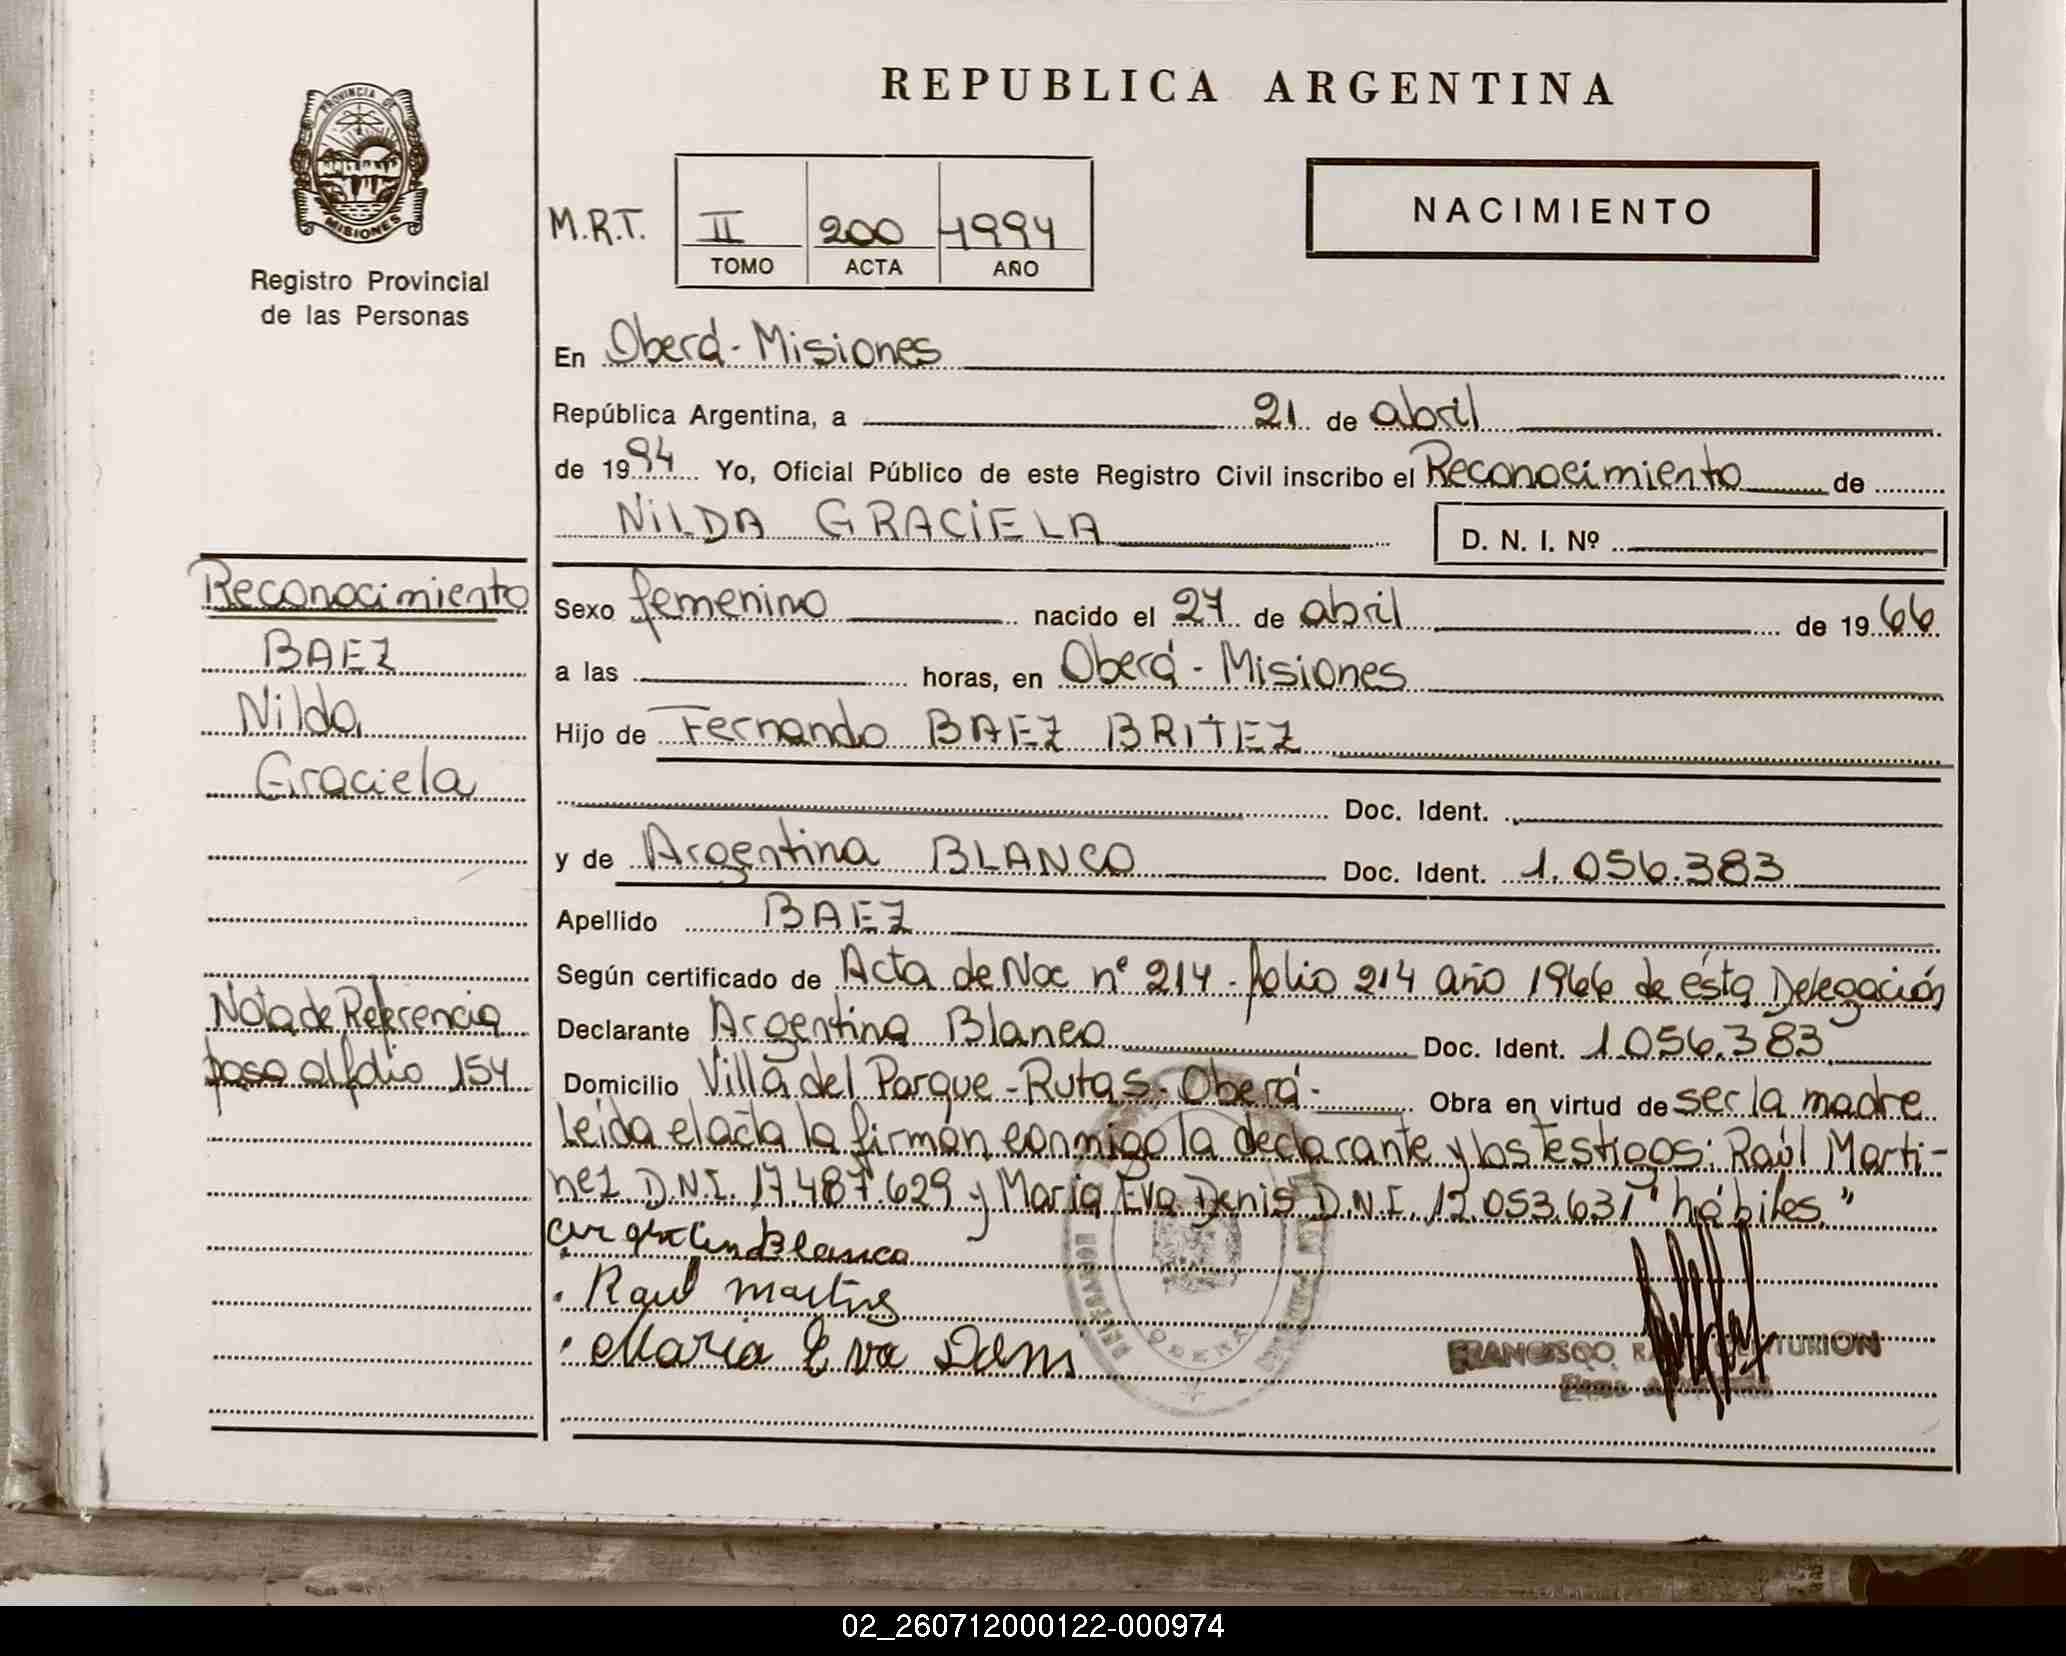 REPUBLICA ARGENTINA
PROVINCIA DE
MISIONES
Registro Provincial
de las Personas
M.R.T.
II 200 1994
TOMO ACTA AÑO
NACIMIENTO
En Oberá - Misiones
República Argentina, a 21 de abril
de 1994 Yo, Oficial Público de este Registro Civil inscribo el Reconocimiento de
NILDA GRACIELA D. N. I. Nº
Reconocimiento
BAEZ
Nilda
Graciela
Nota de Referencia
paso al folio 154
Sexo femenino nacido el 27 de abril de 1966
a las horas, en Oberá - Misiones
Hijo de Fernando BAEZ BRITEZ
Doc. Ident.
y de Argentina BLANCO Doc. Ident. 1.056.383
Apellido BAEZ
Según certificado de Acta de Nac nº 214 - folio 214 año 1966 de ésta Delegación
Declarante Argentina Blanco Doc. Ident. 1.056.383
Domicilio Villa del Parque - Ruta 5 - Oberá - Obra en virtud de ser la madre
Leída el acta la firmán conmigo la declarante y los testigos: Raúl Marti-
nez D.N.I. 17.487.629 y María Eva Denis D.N.I. 12.053.631 "hábiles"
Blanco
Raul
Maria Eva
OBERA
FRANCISCO CENTURION
02_260712000122-000974